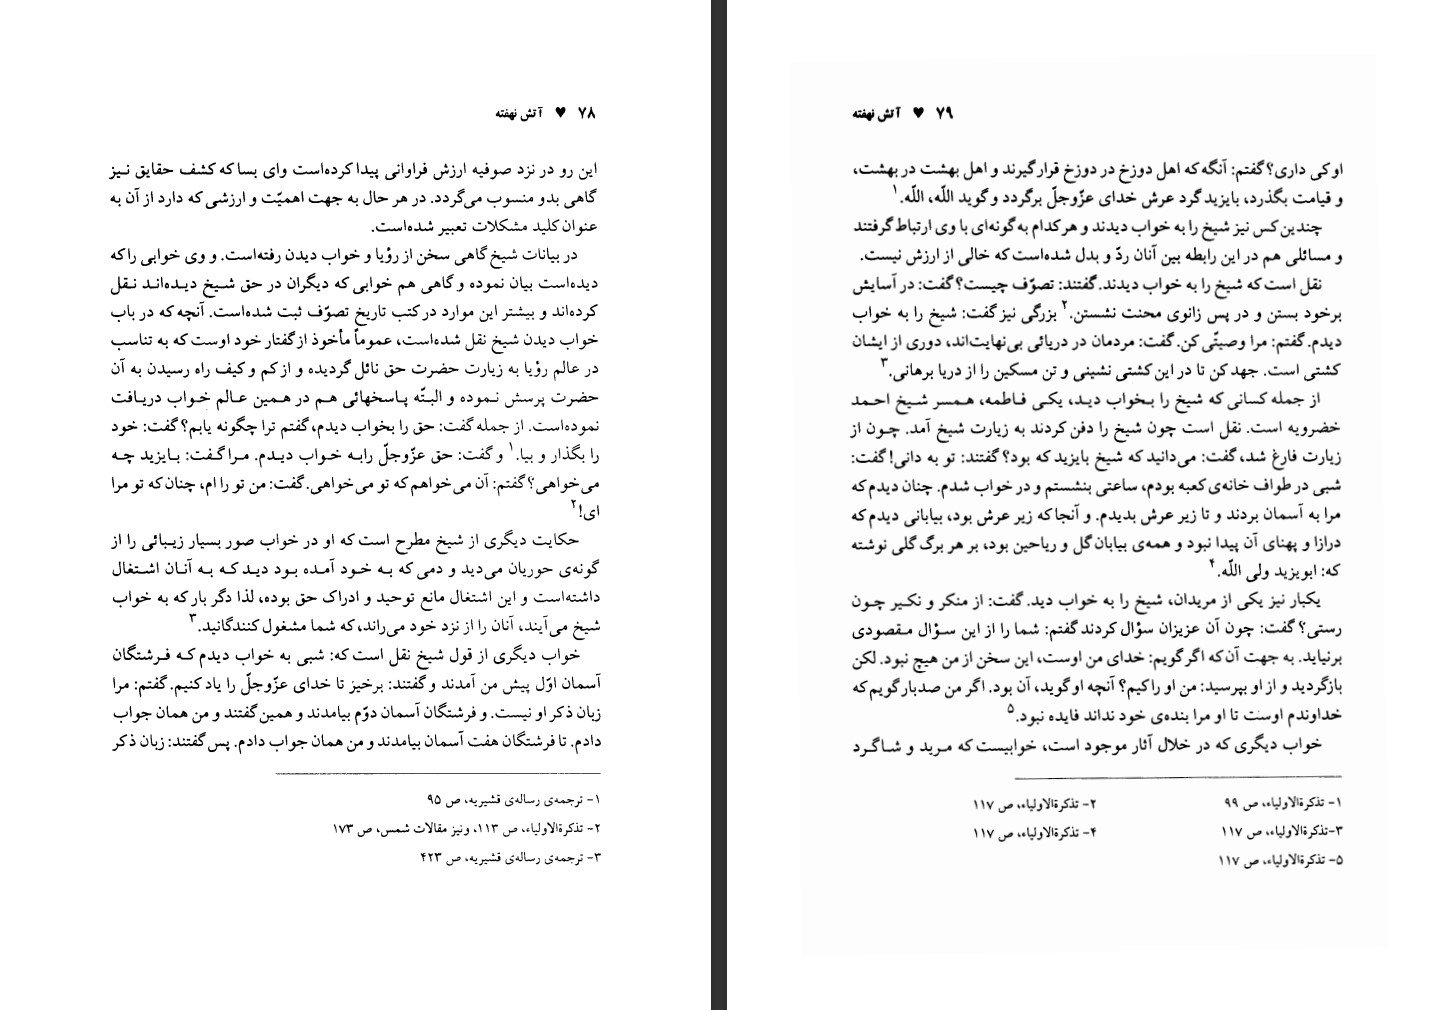 ۷۸ ♥ آتش نهفته
این رو در نزد صوفیه ارزش فراوانی پیدا کرده‌است وای بسا که کشف حقایق نیز
گاهی بدو منسوب می‌گردد. در هر حال به جهت اهمیّت و ارزشی که دارد از آن به
عنوان کلید مشکلات تعبیر شده‌است.
در بیانات شیخ گاهی سخن از رؤیا و خواب دیدن رفته‌است. و وی خوابی را که
دیده‌است بیان نموده و گاهی هم خوابی که دیگران در حق شیخ دیده‌اند نقل
کرده‌اند و بیشتر این موارد در کتب تاریخ تصوّف ثبت شده‌است. آنچه که در باب
خواب دیدن شیخ نقل شده‌است، عموماً مأخوذ از گفتار خود اوست که به تناسب
در عالم رؤیا به زیارت حضرت حق نائل گردیده و از کم و کیف راه رسیدن به آن
حضرت پرسش نموده و البتّه پاسخهائی هم در همین عالم خواب دریافت
نموده‌است. از جمله گفت: حق را بخواب دیدم، گفتم ترا چگونه یابم؟ گفت: خود
را بگذار و بیا.۱ و گفت: حق عزّوجلّ رابه خواب دیدم. مرا گفت: بایزید چه
می‌خواهی؟ گفتم: آن می‌خواهم که تو می‌خواهی. گفت: من تو را ام، چنان که تو مرا
ای!۲
حکایت دیگری از شیخ مطرح است که او در خواب صور بسیار زیبائی را از
گونه‌ی حوریان می‌دید و دمی که به خود آمده بود دید که به آنان اشتغال
داشته‌است و این اشتغال مانع توحید و ادراک حق بوده، لذا دگر بار که به خواب
شیخ می‌آیند، آنان را از نزد خود می‌راند، که شما مشغول کنندگانید.۳
خواب دیگری از قول شیخ نقل است که: شبی به خواب دیدم که فرشتگان
آسمان اوّل پیش من آمدند و گفتند: برخیز تا خدای عزّوجلّ را یاد کنیم. گفتم: مرا
زبان ذکر او نیست. و فرشتگان آسمان دوّم بیامدند و همین گفتند و من همان جواب
دادم. تا فرشتگان هفت آسمان بیامدند و من همان جواب دادم. پس گفتند: زبان ذکر
۱- ترجمه‌ی رساله‌ی قشیریه، ص ۹۵
۲- تذکرةالاولیاء، ص ۱۱۳، ونیز مقالات شمس، ص ۱۷۳
۳- ترجمه‌ی رساله‌ی قشیریه، ص ۴۲۳
۷۹ ♥ آتش نهفته
او کی داری؟ گفتم: آنگه که اهل دوزخ در دوزخ قرار گیرند و اهل بهشت در بهشت،
و قیامت بگذرد، بایزید گرد عرش خدای عزّوجلّ برگردد و گوید اللّه، اللّه.۱
چندین کس نیز شیخ را به خواب دیدند و هر کدام به گونه‌ای با وی ارتباط گرفتند
و مسائلی هم در این رابطه بین آنان ردّ و بدل شده‌است که خالی از ارزش نیست.
نقل است که شیخ را به خواب دیدند. گفتند: تصوّف چیست؟ گفت: در آسایش
برخود بستن و در پس زانوی محنت نشستن.۲ بزرگی نیز گفت: شیخ را به خواب
دیدم. گفتم: مرا وصیتّی کن. گفت: مردمان در دریائی بی‌نهایت‌اند، دوری از ایشان
کشتی است. جهد کن تا در این کشتی نشینی و تن مسکین را از دریا برهانی.۳
از جمله کسانی که شیخ را بخواب دید، یکی فاطمه، همسر شیخ احمد
خضرویه است. نقل است چون شیخ را دفن کردند به زیارت شیخ آمد. چون از
زیارت فارغ شد، گفت: می‌دانید که شیخ بایزید که بود؟ گفتند: تو به دانی! گفت:
شبی در طواف خانه‌ی کعبه بودم، ساعتی بنشستم و در خواب شدم. چنان دیدم که
مرا به آسمان بردند و تا زیر عرش بدیدم. و آنجا که زیر عرش بود، بیابانی دیدم که
درازا و پهنای آن پیدا نبود و همه‌ی بیابان گل و ریاحین بود، بر هر برگ گلی نوشته
که: ابویزید ولی اللّه.۴
یکبار نیز یکی از مریدان، شیخ را به خواب دید. گفت: از منکر و نکیر چون
رستی؟ گفت: چون آن عزیزان سؤال کردند گفتم: شما را از این سؤال مقصودی
برنیاید. به جهت آن که اگر گویم: خدای من اوست، این سخن از من هیچ نبود. لکن
بازگردید و از او بپرسید: من او را کیم؟ آنچه او گوید، آن بود. اگر من صدبار گویم که
خداوندم اوست تا او مرا بنده‌ی خود نداند فایده نبود.۵
خواب دیگری که در خلال آثار موجود است، خوابیست که مرید و شاگرد
۱- تذکرةالاولیاء، ص ۹۹ ۲- تذکرةالاولیاء، ص ۱۱۷
۳-تذکرةالاولیاء، ص ۱۱۷ ۴- تذکرةالاولیاء، ص ۱۱۷
۵- تذکرةالاولیاء، ص ۱۱۷